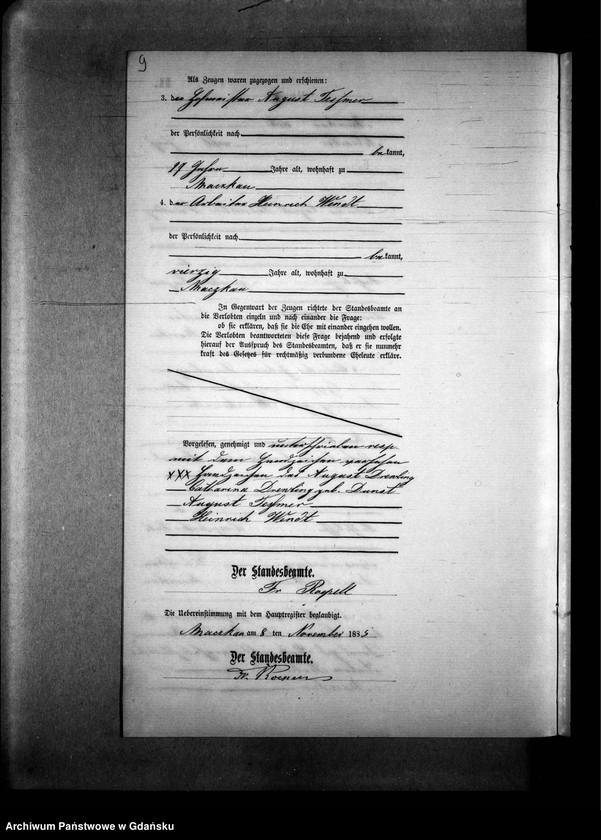 9
Als Zeugen waren zugezogen und erschienen:
3. der Hofmeister August Teßmer
der Persönlichkeit nach
be kannt,
Jahre alt, wohnhaft zu
Maczkau
4. der Arbeiter Heinrich Wendt
der Persönlichkeit nach
be kannt,
vierzig Jahre alt, wohnhaft zu
Maczkau
In Gegenwart der Zeugen richtete der Standesbeamte an
die Verlobten einzeln und nach einander die Frage:
ob sie erklären, daß sie die Ehe mit einander eingehen wollen.
Die Verlobten beantworteten diese Frage bejahend und erfolgte
hierauf der Ausspruch des Standesbeamten, daß er sie nunmehr
kraft des Gesetzes für rechtmäßig verbundene Eheleute erkläre.
Vorgelesen, genehmigt und unterschrieben resp.
mit dem Handzeichen versehen
XXX Handzeichen des August Drewling
Catharina Drewling geb. Dunst
August Teßmer
Heinrich Wendt
Der Standesbeamte.
Fr.
Die Uebereinstimmung mit dem Hauptregister beglaubigt.
Maczkau am 8 ten November 1885
Der Standesbeamte.
Archiwum Państwowe w Gdańsku